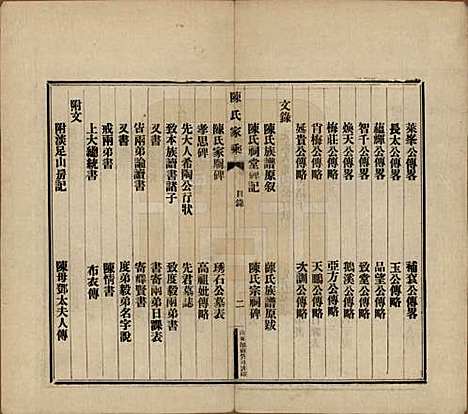 萊峯公傳畧
補袞公傳畧
長太公傳畧
玉公傳略
蘊輝公傳畧
品望公傳略
智千公傳略
致堂公傳略
煥天公傳略
鵝溪公傳略
梅莊公傳略
亞方公傳略
宵梅公傳略
天鵬公傳略
延貴公傳略
次訓公傳略
文錄
陳氏族譜原叙
陳氏族譜原跋
陳氏祠堂碑記
陳氏宗祠碑
陳氏家乘
目錄
二
陳氏家廟碑
琇石公墓表
孝思碑
高祖妣傳略
先大人希陶公行狀
先君墓誌
致本族讀書諸子
致度毅兩弟書
又書
書寄兩弟日課表
寄兩弟論讀書
寄峄賢書
又書
度弟毅弟名字說
戒兩弟書
陳情書
上大總統書
布衣傳
附文
附漢足山房記
陳母鄧太夫人傳